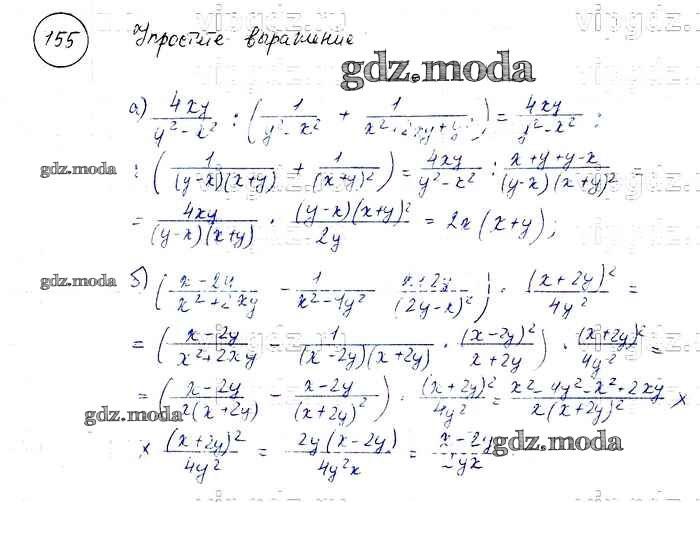 155 Упростите выражение
gdz.moda
а) 4xy/(y² - x²) : (1/(y² - x²) + 1/(x² + 2xy + y²)) = 4xy/(y² - x²) :
gdz.moda : (1/((y-x)(x+y)) + 1/(x+y)²) = 4xy/(y² - x²) : (x+y+y-x)/((y-x)(x+y)²) =
= 4xy/((y-x)(x+y)) · ((y-x)(x+y)²)/2y = 2x(x+y);
gdz.moda б) ((x-2y)/(x²+2xy) - 1/(x²-4y²) : (x+2y)/(2y-x)²) · (x+2y)²/4y² =
= ((x-2y)/(x²+2xy) - 1/((x-2y)(x+2y)) · (x-2y)²/(x+2y)) · (x+2y)²/4y² =
= ((x-2y)/(x(x+2y)) - (x-2y)/(x+2y)²) · (x+2y)²/4y² = (x²-4y²-x²+2xy)/(x(x+2y)²) ×
gdz.moda
× (x+2y)²/4y² = 2y(x-2y)/4y²x = (x-2y)/2yx
gdz.moda
vipgdz.ru